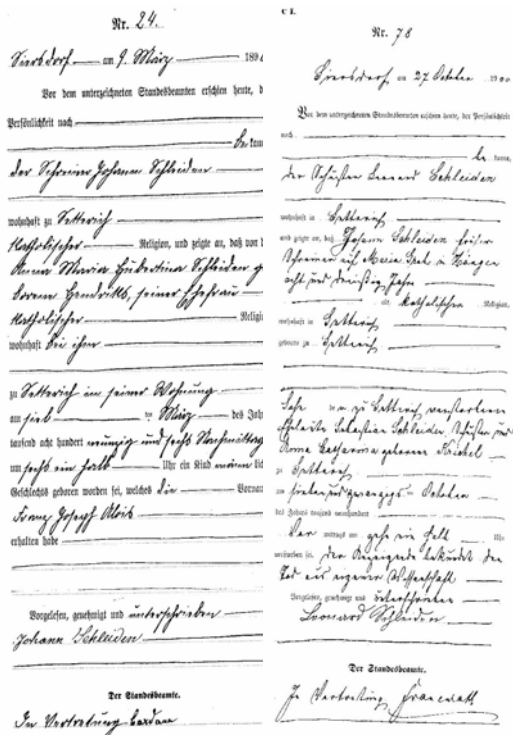 Nr. 24.
Siersdorf am 9. März 189
Vor dem unterzeichneten Standesbeamten erschien heute, d
Persönlichkeit nach
be kan
der Schreiner Johann Schleiden
wohnhaft zu Setterich
katholischer Religion, und zeigte an, daß von d
Anna Maria Hubertina Schleiden g
borene Hendriks, seiner Ehefrau
katholischer Religi
wohnhaft bei ihm
zu Setterich in seiner Wohnung
am sieb ten März des Jah
tausend acht hundert neunzig und sechs Nachmittags
um sechs ein halb Uhr ein Kind männ lic
Geschlechts geboren worden sei, welches die Vorna
Franz Joseph Alois
erhalten habe
Vorgelesen, genehmigt und unterschrieben
Johann Schleiden
Der Standesbeamte.
In Vertretung
C I.
Nr. 78
Siersdorf am 27. October 190
Vor dem unterzeichneten Standesbeamten erschien heute, der Persönlichkeit
nach
be kannt,
der Schuster Leonard Schleiden
wohnhaft in Setterich
und zeigte an, daß Johann Schleiden früher
Schreiner auf Maria Grube in Höngen
acht und dreißig Jahre
alt, katholischer Religion,
wohnhaft in Setterich
geboren zu Setterich
Sohn der zu Setterich verstorbenen
Eheleute Sebastian Schleiden, Schuster und
Anna Catharina geborene
zu Setterich
am sieben und zwanzigsten October
des Jahres tausend neunhundert
Vor mittags um zehn ein halb Uhr
verstorben sei. Der Anzeigende bekundet den
Tod aus eigener Wissenschaft
Vorgelesen, genehmigt und unterschrieben
Leonard Schleiden
Der Standesbeamte.
In Vertretung